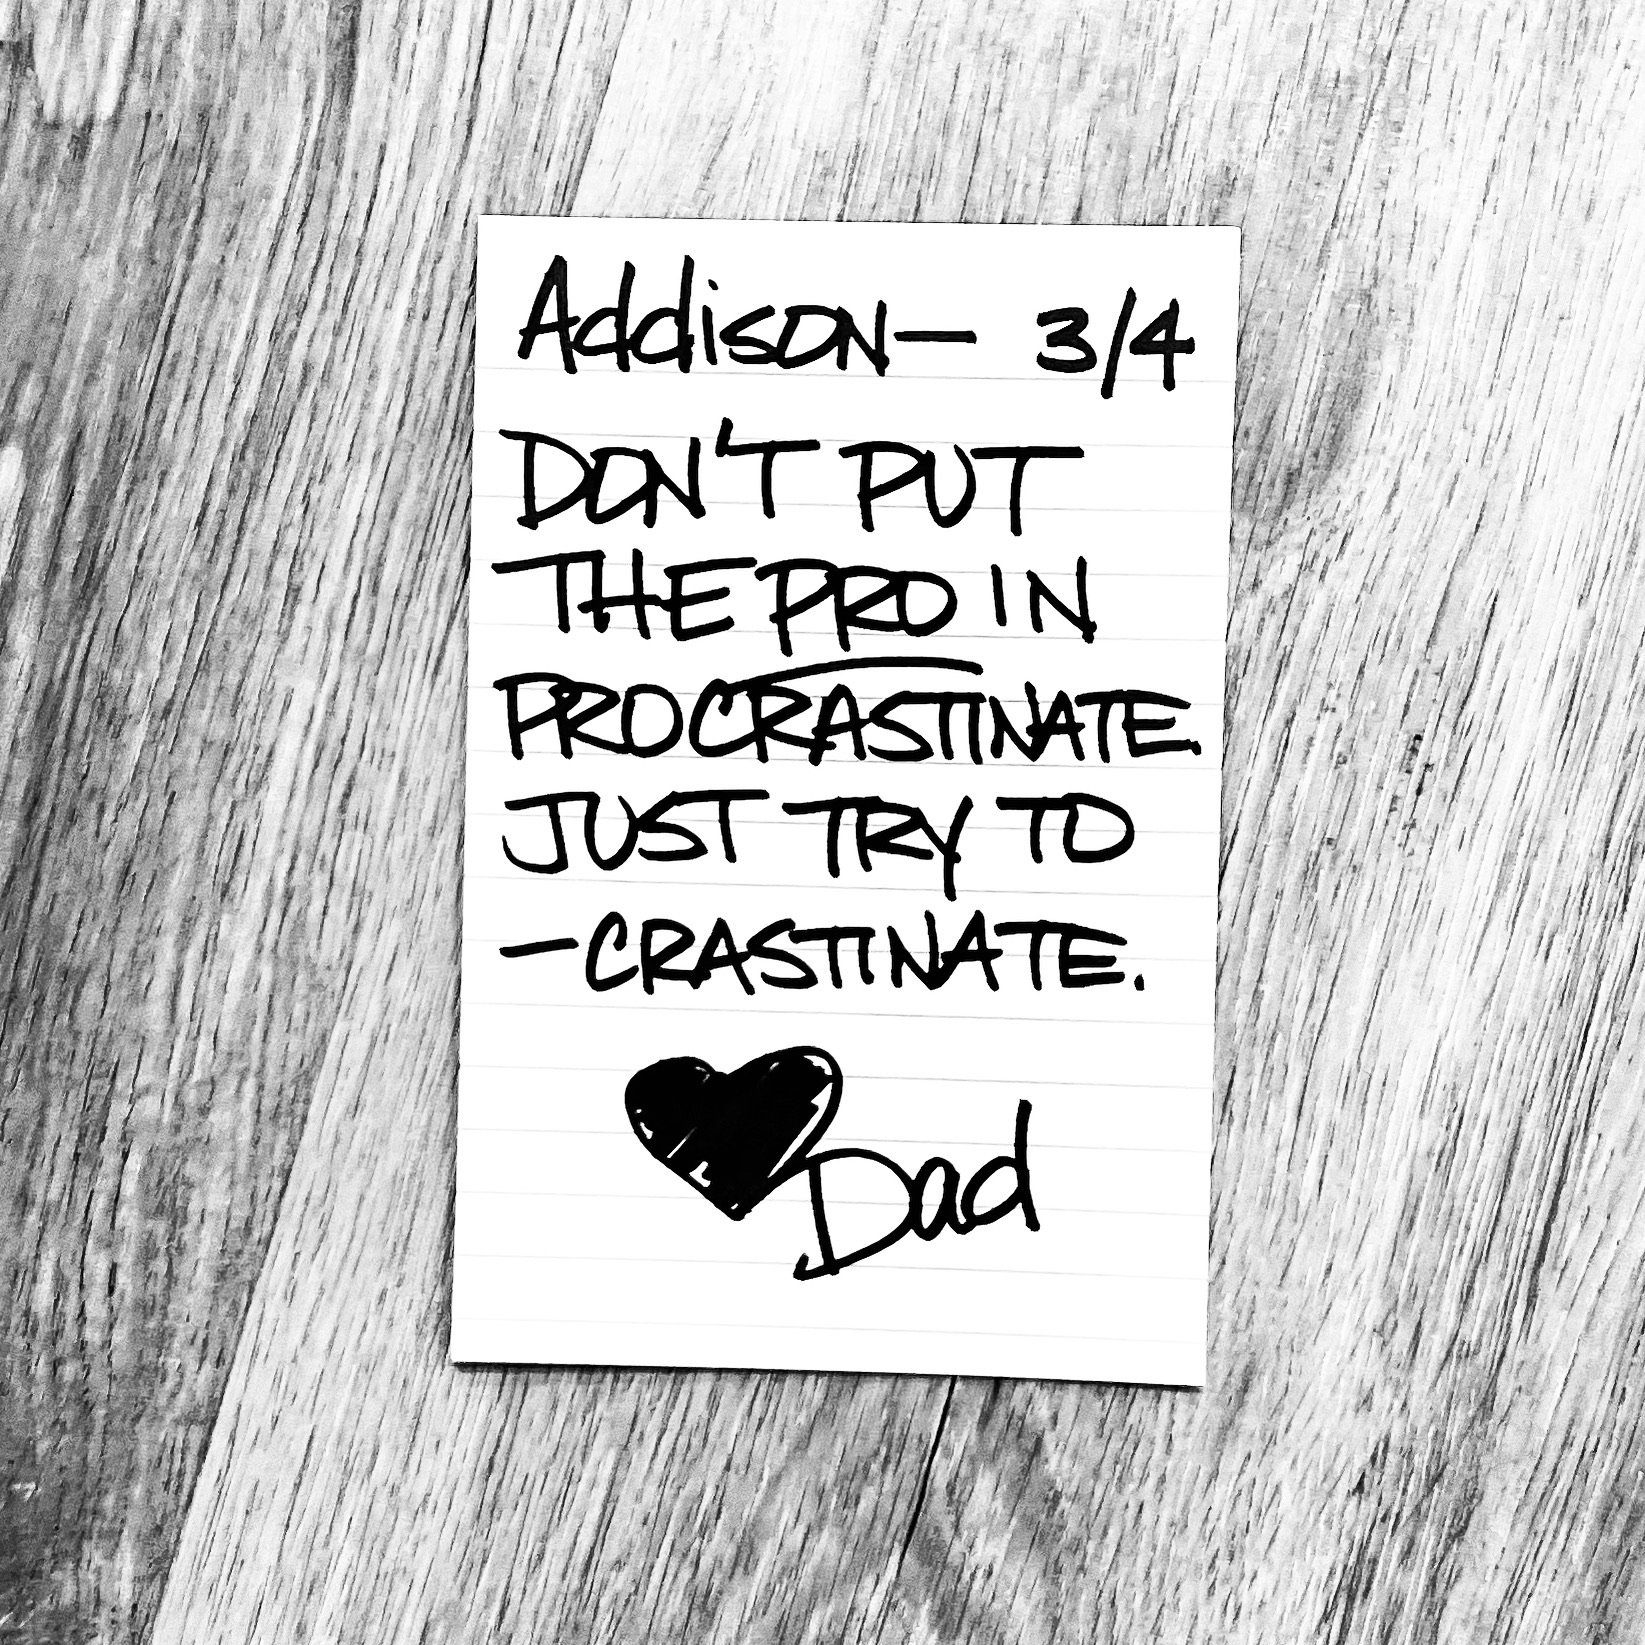 Addison— 3/4
DON'T PUT
THE PRO IN
PROCRASTINATE.
JUST TRY TO
—CRASTINATE.
Dad